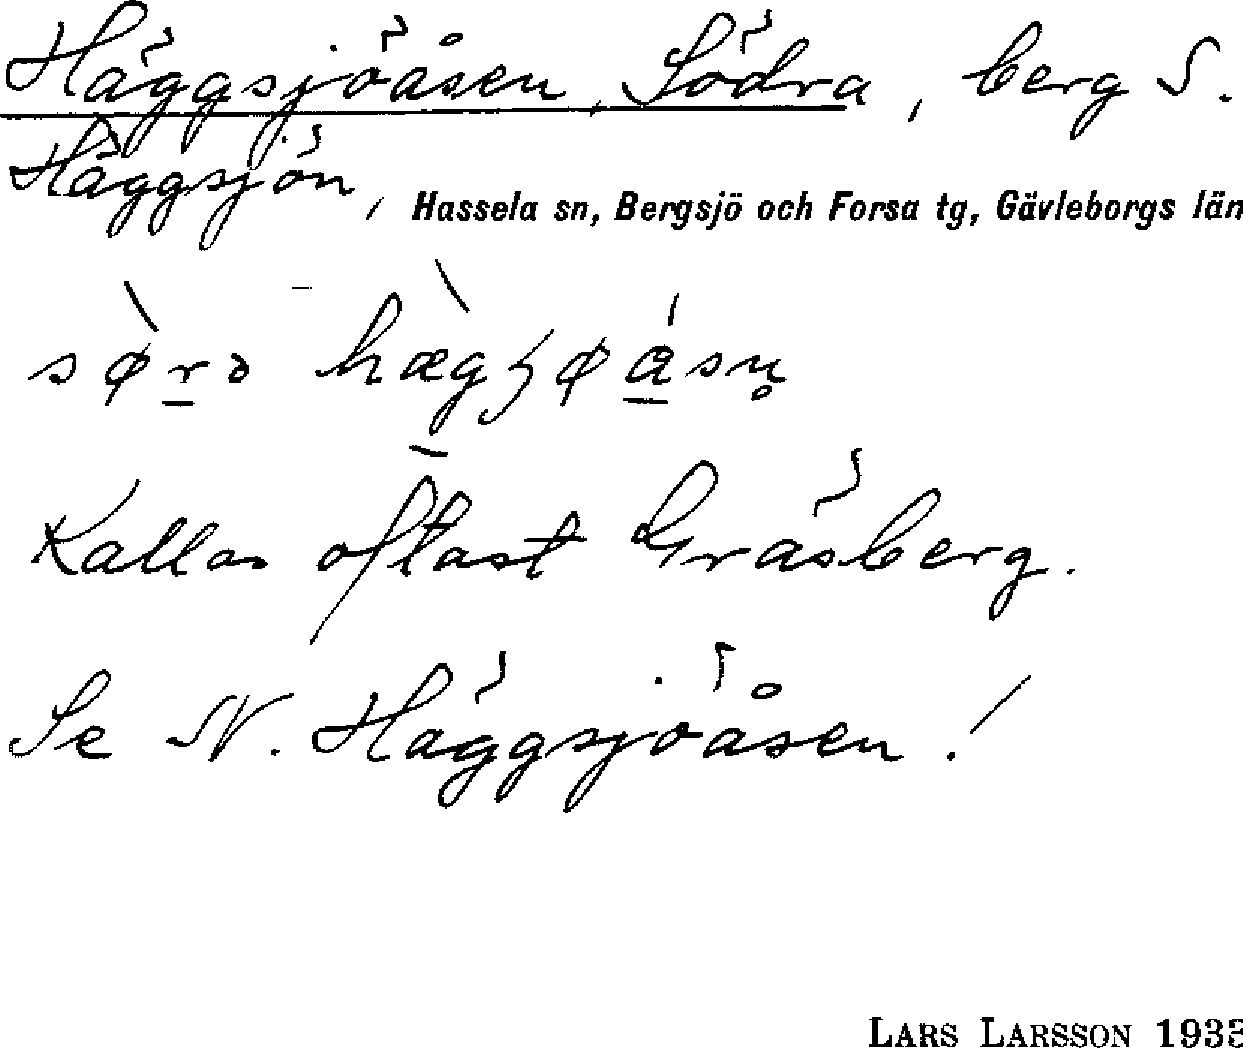 Häggsjöåsen, Södra, berg S.
Häggsjön, Hassela sn, Bergsjö och Forsa tg, Gävleborgs län
Kallas oftast Gräsberg.
Se N. Häggsjöåsen!
LARS LARSSON